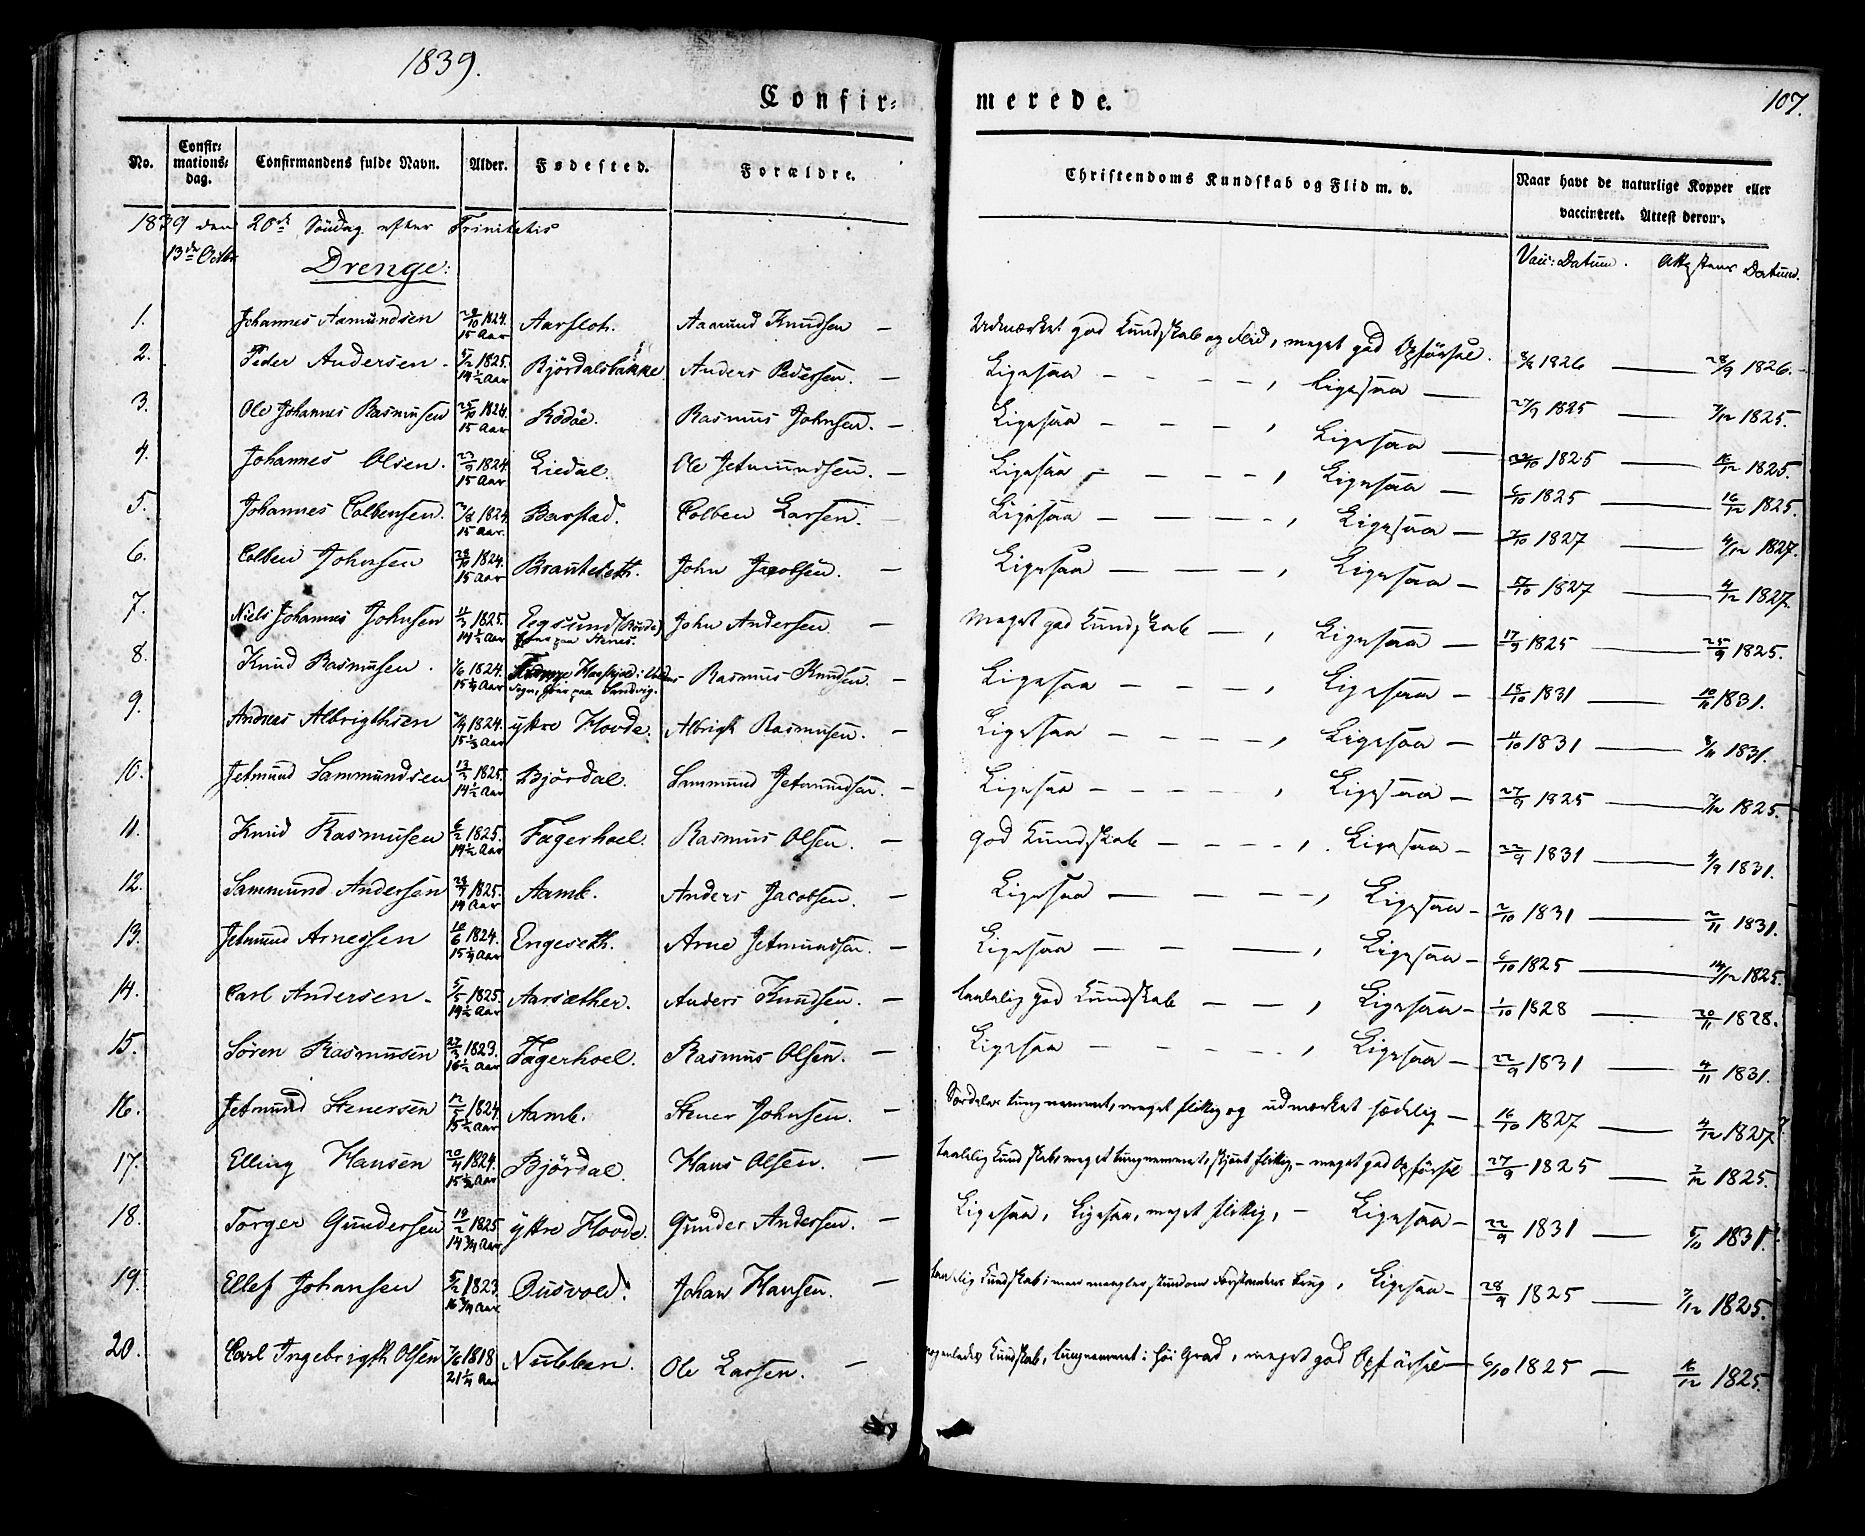 1839.
Confir= merede. 107.
No. Confirmations=dag. Confirmandens fulde Navn. Alder. Fødested. Forældre. Christendoms Kundskab og Flid m. v. Naar havt de naturlige Kopper eller vaccineret. Attest derom.
1839 den 20de Søndag efter Trinitatis
13de Octbr Drenge: Vacc: Datum. Attestens Datum.
1. Johannes Aamundsen 1824. 15 Aar Aarsloh. Aamund Knudsen — Udmærket god Kundskab og Flid, meget god Opførsel. 1826 — 1826.
2. Peder Andersen. 5/2 1825. 14½ Aar Bjørdalsbakke Anders Pedersen. — Ligesaa — — — , Ligesaa — 27/9 1825 — 7/12 1825.
3. Ole Johannes Rasmusen 25/10 1824. 15 Aar Rødøe. Rasmus Johnsen. — Ligesaa — — — , Ligesaa — 1825 — 16/12 1825.
4. Johannes Olsen. 23/9 1824. 15 Aar Liedal. Ole Jetmundsen. — Ligesaa — — — , Ligesaa — 6/10 1825 — 16/12 1825.
5. Johannes Colbensen. 1824 15 Aar. Barstad. Colben Larsen. — Ligesaa — — — , Ligesaa — 1827 — 4/12 1827.
6. Colben Johnsen 28/10 1824. 15 Aar Brauteseth. John Jacobsen. — Ligesaa — — — , Ligesaa — 1827 — 4/12 1827.
7. Niels Johannes Johnsen 1825. 14½ Aar Eegsund (Rødøe) John Andersen — Meget god Kundskab — , Ligesaa — 17/9 1825 — 25/9 1825.
8. Knud Rasmusen. 1824. 15¼ Aar Rasmus Knudsen. — Ligesaa — — — , Ligesaa — 15/10 1831 — 1831.
9. Andreas Albrigthsen 1824. 15⅓ Aar yttre Hovde. Albrigt Rasmusen. — Ligesaa — — — , Ligesaa — 1831 — 1831.
10. Jetmund Sammundsen 13/3 1825. 14½ Aar Bjørdal. Sammund Jetmundsen. — Ligesaa — — — , Ligesaa — 27/9 1825 — 7/12 1825.
11. Knud Rasmusen 6/2 1825. 14½ Aar Fagerhoel. Rasmus Olsen. — god Kundskab — — — , Ligesaa — 22/9 1831 — 1831.
12. Sammund Andersen 1825. 14 Aar Aamb. Anders Jacobsen. — Ligesaa — — — , Ligesaa — 2/10 1831 — 2/11 1831.
13. Jetmund Arnessen 10/6 1824. 15¼ Aar Engeseth. Arne Jetmundsen. — Ligesaa — — — , Ligesaa — 6/10 1825 — 14/12 1825.
14. Carl Andersen. 5/5 1825. 14½ Aar Aarsæther. Anders Knudsen. — taalelig god Kundskab — — , Ligesaa — 1/10 1828 — 20/11 1828.
15. Søren Rasmusen 27/3 1823. 16½ Aar Fagerhoel. Rasmus Olsen. — Ligesaa — — — , Ligesaa — 22/9 1831 — 4/11 1831.
16. Jetmund Stenersen 12/5 1824. 15½ Aar Aamb. Stener Johnsen. — Særdeles tungnemmet, meget flittig og udmærket sædelig — 16/10 1827 — 4/12 1827.
17. Elling Hansen 20/4 1824. 15½ Aar Bjørdal. Hans Olsen. — taalelig Kundskab, meget tungnemmet, skjønt flittig — meget god Opførsel 27/9 1825 — 7/12 1825.
18. Torger Gundersen 19/2 1825 14¾ Aar yttre Hovde. Gunder Andersen. — Ligesaa, Ligesaa, meget flittig, — Ligesaa — 22/9 1831 — 1831.
19. Ellef Johansen 5/2 1823. 16¾ Aar Busvold. Johan Hansen. — taalelig Kundskab; men mangler, stundom Forstandens brug, Ligesaa — 28/9 1825 — 7/12 1825.
20. Carl Ingebrigth Olsen 1818 21¼ Aar Nubben. Ole Larsen. — Kundskab, tungnemmet i høi Grad, meget god Opførsel — 6/10 1825 — 16/12 1825.